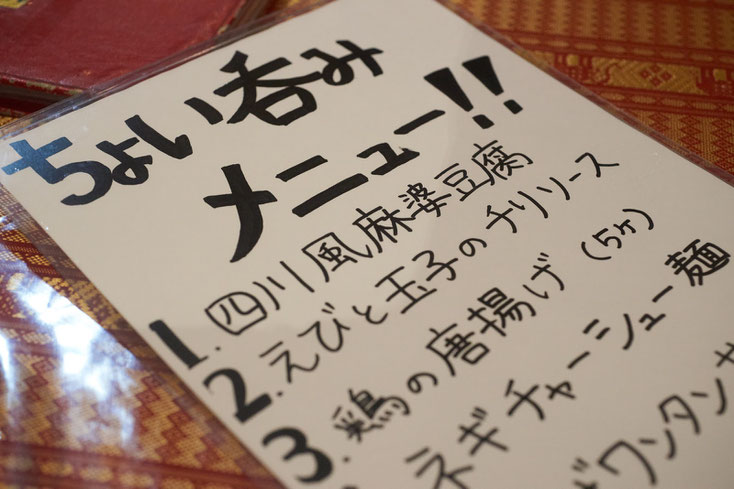 ちょい呑み
メニュー!!
1. 四川風麻婆豆腐
2. えびと玉子のチリソース
3. 鶏の唐揚げ(5ヶ)
ネギチャーシュー麺
ワンタン